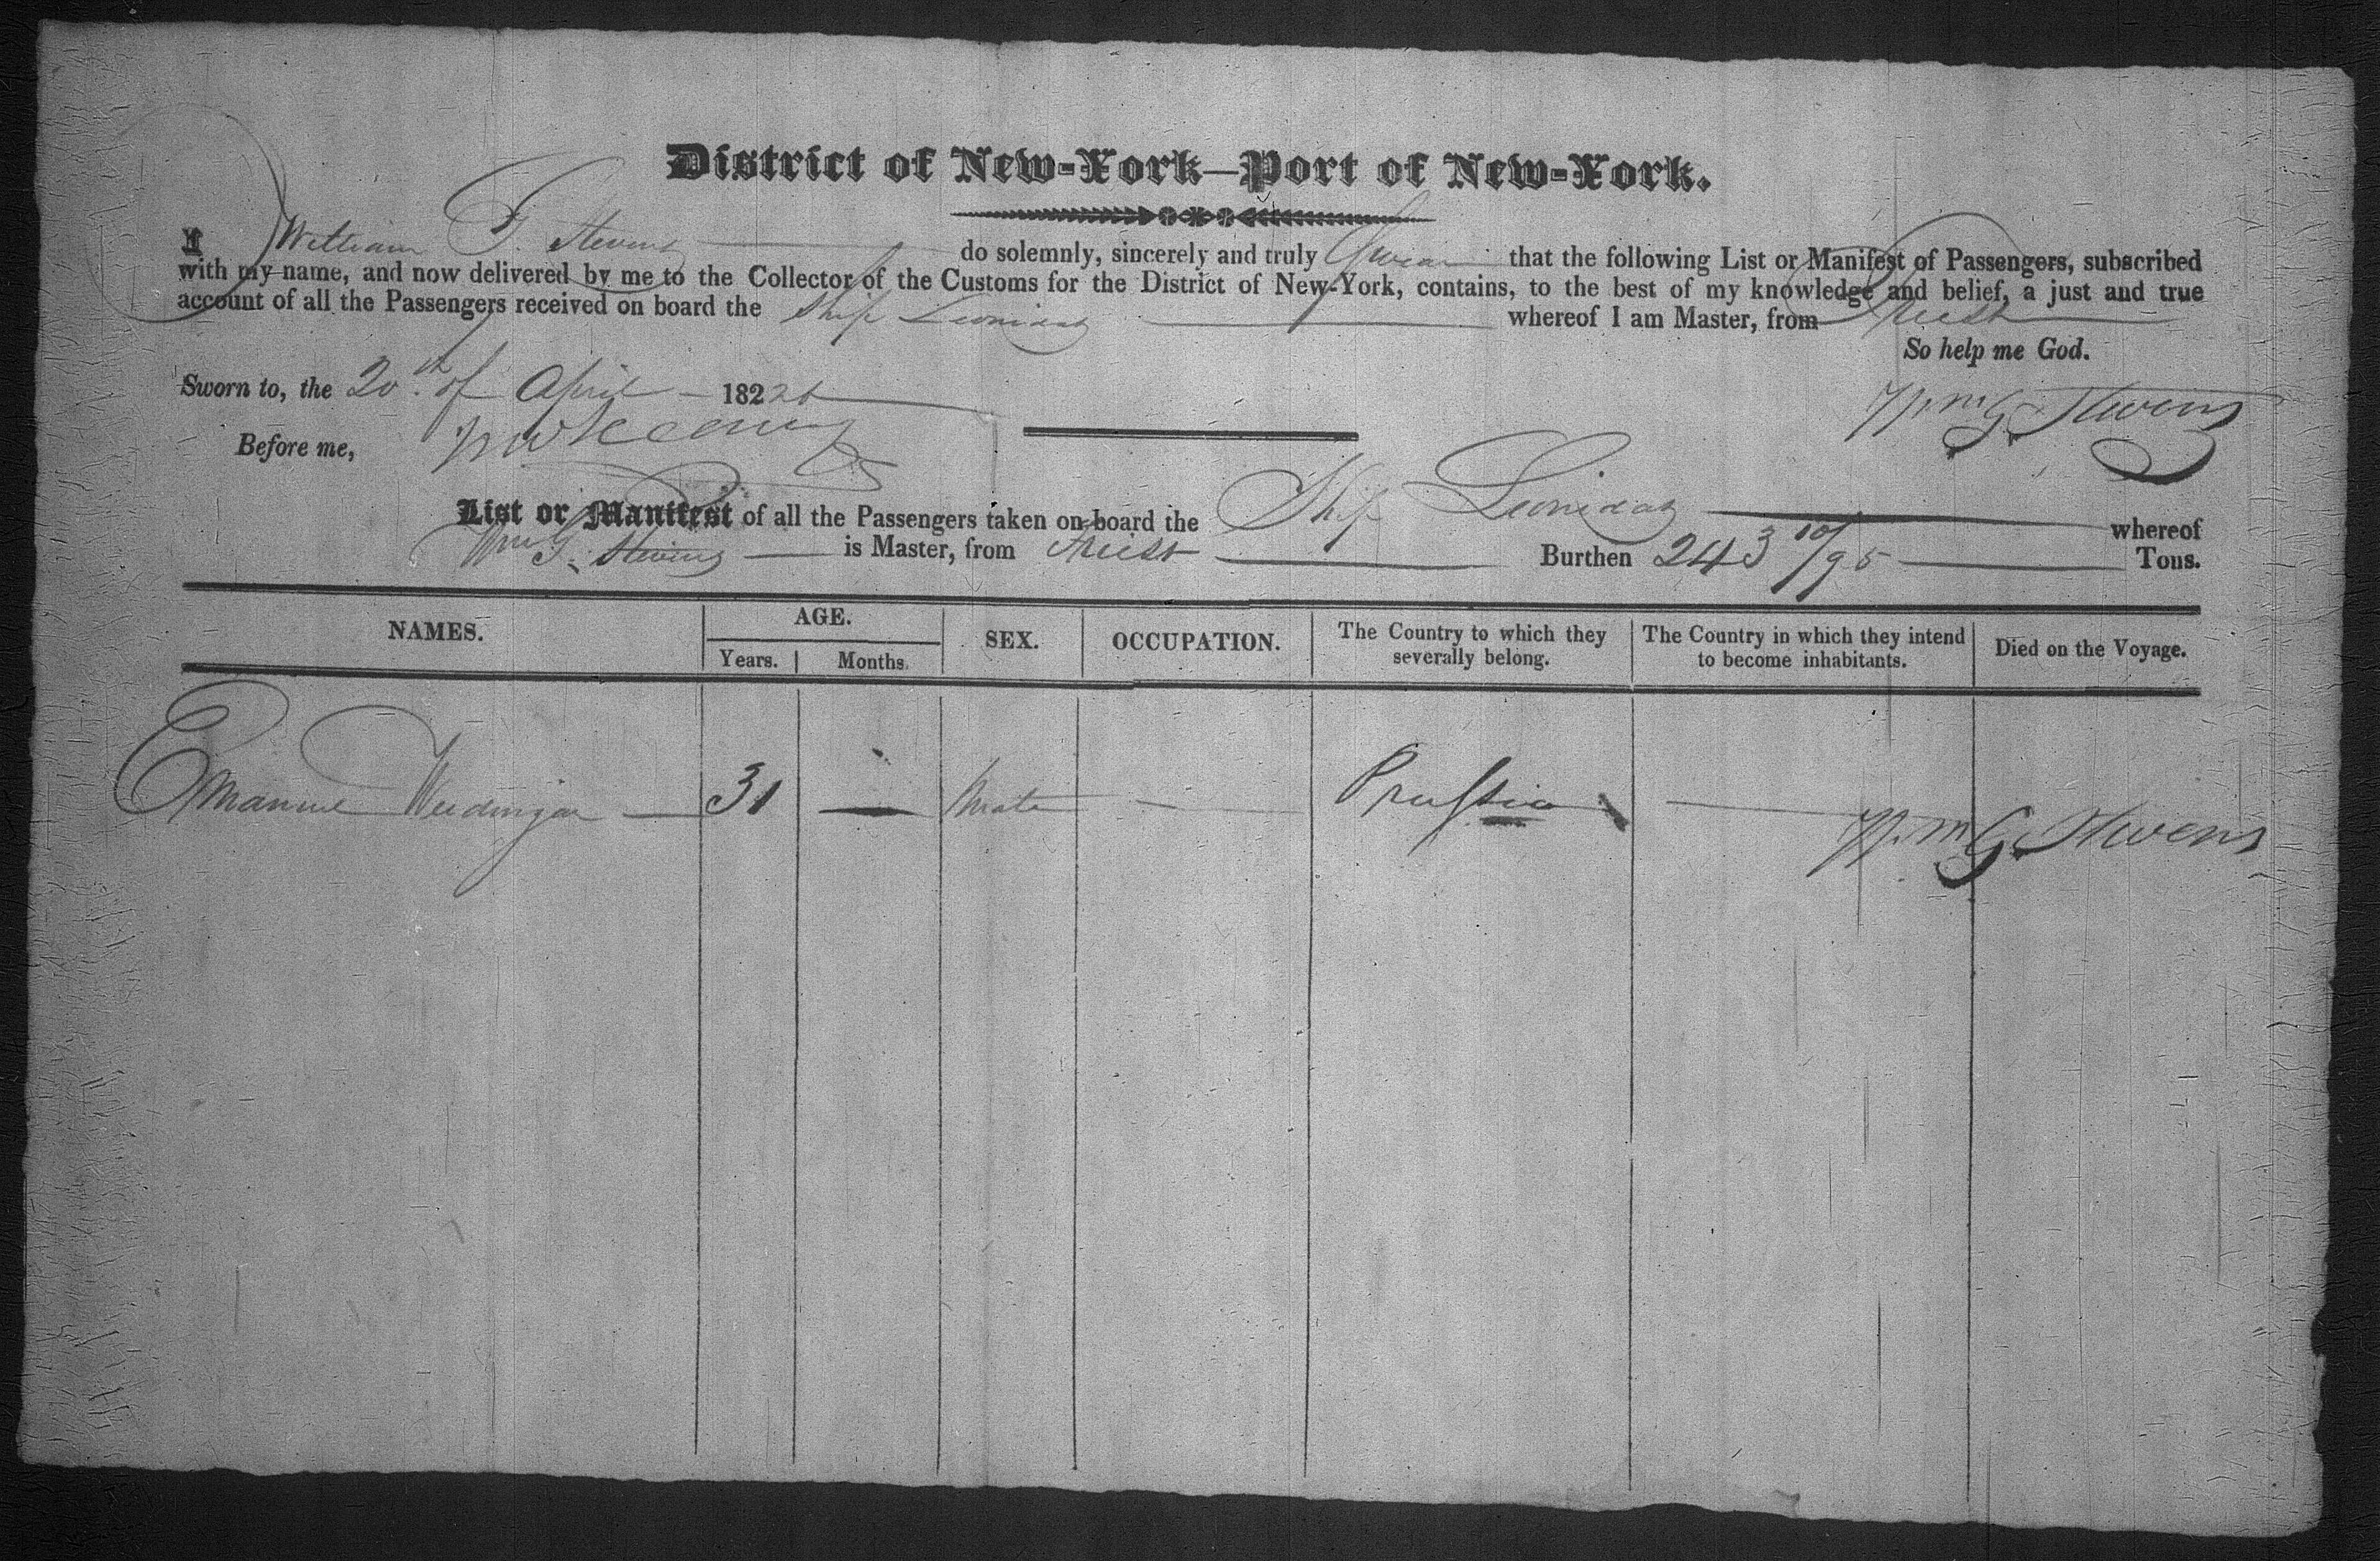 District of New-York—Port of New-York.
I William G. Stevens do solemnly, sincerely and truly Swear that the following List or Manifest of Passengers, subscribed
with my name, and now delivered by me to the Collector of the Customs for the District of New-York, contains, to the best of my knowledge and belief, a just and true
account of all the Passengers received on board the Ship Leonidas whereof I am Master, from Triest
So help me God.
Sworn to, the 20th of April 182
Wm G. Stevens
Before me,
List or Manifest of all the Passengers taken on board the Ship Leonidas whereof
Wm G. Stevens is Master, from Triest Burthen 243 10/95 Tons.
NAMES. AGE. SEX. OCCUPATION. The Country to which they severally belong. The Country in which they intend to become inhabitants. Died on the Voyage.
Years. Months.
Emanuel 31 — Male — Prussia —
Wm G. Stevens